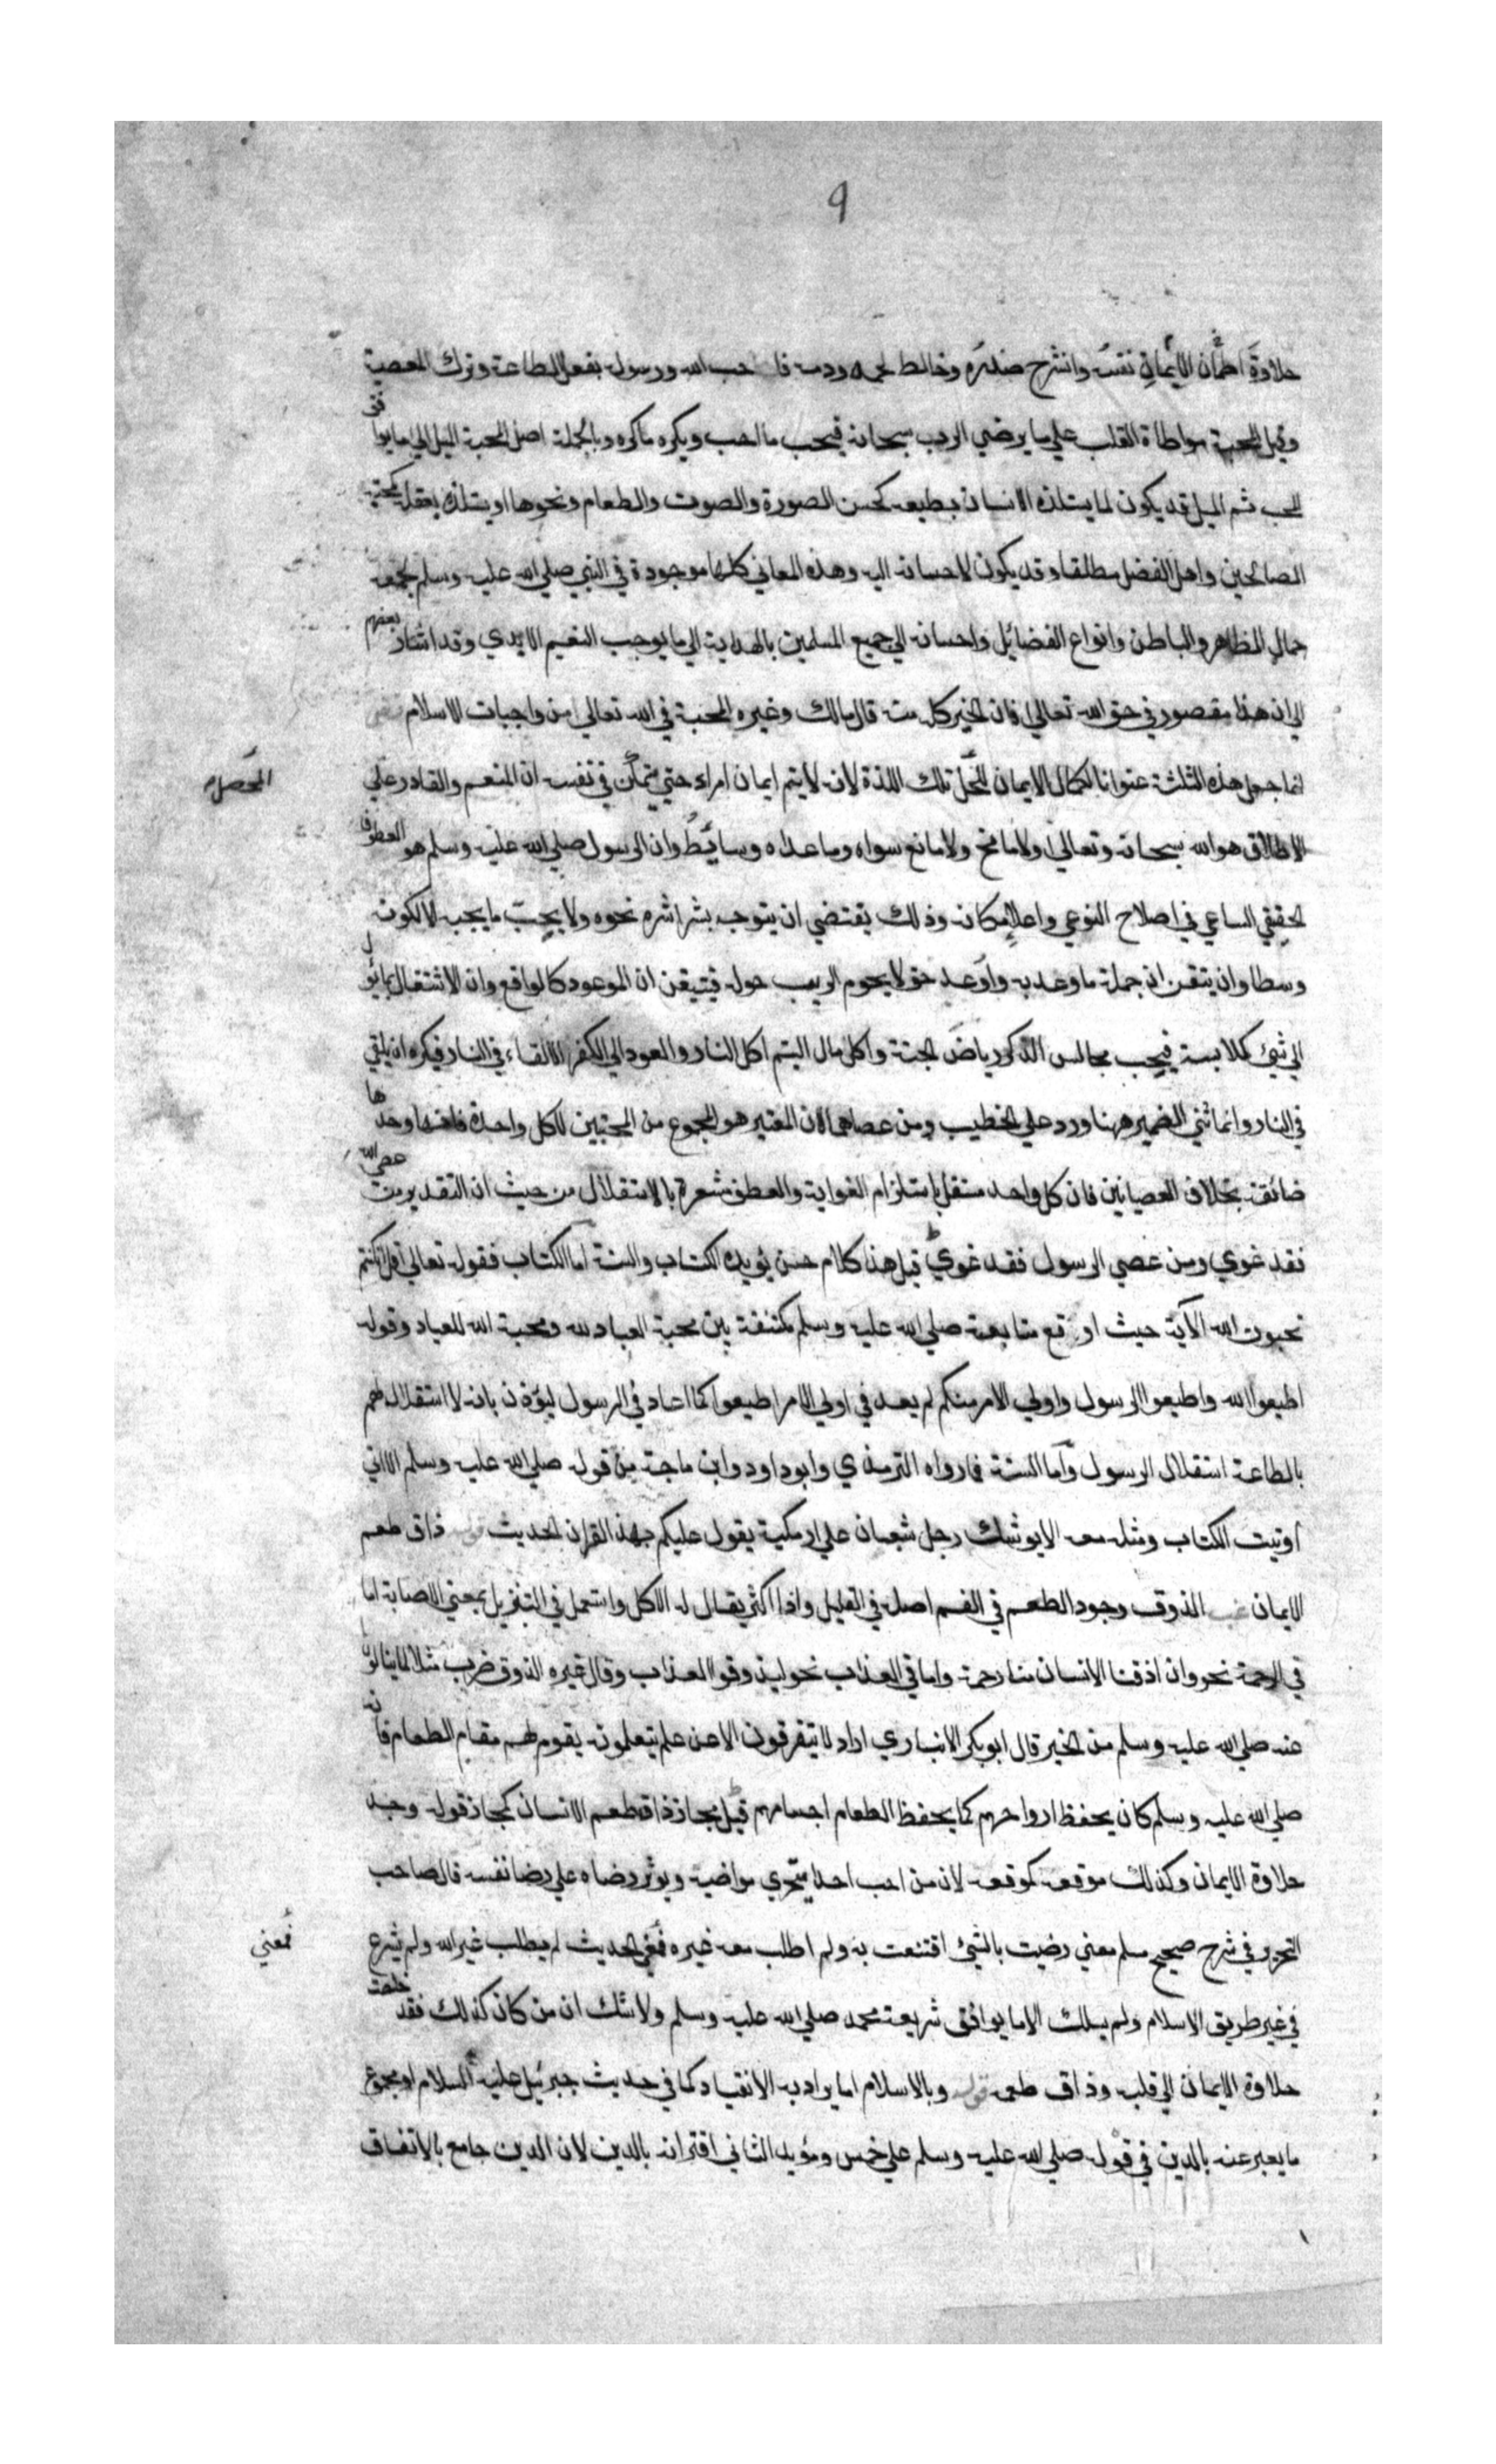 9
حلاوة الايمان اطمأن نفسه وانشرح صدره وخالط لحمه ودمه حب الله ورسوله بفعل الطاعة وترك المعصية
وقيل المحبة مواطأة القلب علي ما يرضي الرب سبحانه فيحب ما احب ويكره ما كره وبالجملة اصل المحبة الميل الي ما يوافق
المحب ثم الميل قد يكون لما يستلذه الانسان بطبعه كحسن الصورة والصوت والطعام ونحوها او يستلذه بعقله كمحبة
الصالحين واهل الفضل مطلقا وقد يكون لاحسانه اليه وهذه المعاني كلها موجودة في النبي صلي الله عليه وسلم لجمعه
جمال الظاهر والباطن وانواع الفضائل واحسانه الي جميع المسلمين بالهداية الي ما يوجب النعيم الابدي وقد اشار بعضهم
الي ان هذا مقصور في حق الله تعالي فان الخير كله منه قال مالك وغيره المحبة في الله تعالي من واجبات الاسلام
انما جعل هذه الثلثة عنوانا لكمال الايمان تلك اللذة لانه لا يتم ايمان امراء حتي يتمكن في نفسه ان المنعم والقادر علي
المحصل
الاطلاق هو الله سبحانه وتعالي ولا مانح ولا مانع سواه وما عداه وسائط وان الرسول صلي الله عليه وسلم هو العطوف
الحقيقي الساعي في اصلاح النوعي واعلا مكانه وذلك يقتضي ان يتوجه بشراشره نحوه ولا يحب ما يحبه الا لكونه
وسطا وان يتقن ان جملة ما وعد به واوعد حق لا يحوم الريب حوله فيتيقن ان الموعود كالواقع وان الاشتغال بما يؤل
الي شئ كملابسة فيحب مجالس الذكر رياض الجنة واكل مال اليتيم اكل النار والعود الي الكفر الالقاء في النار فيكره ان يلقي
في النار وانما ثني الضمير ههنا ورد علي الخطيب ومن عصاهما لان المعتبر هو المجموع من المحبتين لا كل واحدة فانها وحدها
ضائعة بخلاف العصيانين فان كل واحد مستقل باستلزام الغواية والعطف مشعرة بالاستقلال من حيث ان التقدير من عصي الله
فقد غوي ومن عصي الرسول فقد غوي قيل هذا كلام حسن يؤيده الكتاب والسنة اما الكتاب فقوله تعالي قل ان كنتم
تحبون الله الآية حيث اوقع متابعته صلي الله عليه وسلم مكتنفة بين محبة العباد لله ومحبة الله للعباد وقوله
اطيعوا الله واطيعوا الرسول واولي الامر منكم لم يعد في اولي الامر اطيعوا كما اعاد في الرسول ليؤذن بانه لا استقلال لهم
بالطاعة استقلال الرسول واما السنة فما رواه الترمذي وابو داود وابن ماجة من قوله صلي الله عليه وسلم الا اني
اوتيت الكتاب ومثله معه الا يوشك رجل شبعان علي اريكته يقول عليكم بهذا القران الحديث قوله ذاق طعم
الايمان الذوق وجود الطعم في الفم اصله في القليل واذا اكثر يقال له الاكل واستعمل في التنزيل بمعني الاصابة اما
في الرحمة نحو وان اذقنا الانسان منا رحمة واما في العذاب نحو ليذوقوا العذاب وقال غيره الذوق ضرب مثلا لما ينالونه
عنه صلي الله عليه وسلم من الخير قال ابو بكر الانباري اراد لا يتفرقون الا عن علم يتعلمونه يقوم لهم مقام الطعام فانه
صلي الله عليه وسلم كان يحفظ ارواحهم كما يحفظ الطعام اجسامهم قيل مجاز ذاق طعم الانسان كمجاز قوله وجد
حلاوة الايمان وكذلك موقعه كموقعه لان من احب احدا يتحري مراضيه ويؤثر رضاه علي رضا نفسه قال صاحب
التحرير في شرح صحيح مسلم معني رضيت بالشئ اقتنعت به ولم اطلب معه غيره فمعني الحديث لم يطلب غير الله ولم يشرع
فمعني
في غير طريق الاسلام ولم يسلك الا ما يوافق شريعة محمد صلي الله عليه وسلم ولا شك ان من كان كذلك فقد خلصت
حلاوة الايمان الي قلبه وذاق طعمه قوله وبالاسلام اما يراد به الانقياد كما في حديث جبرئيل عليه السلام او مجموع
ما يعبر عنه بالدين في قوله صلي الله عليه وسلم علي خمس ومؤيد الثاني اقترانه بالدين لان الدين جامع بالاتفاق